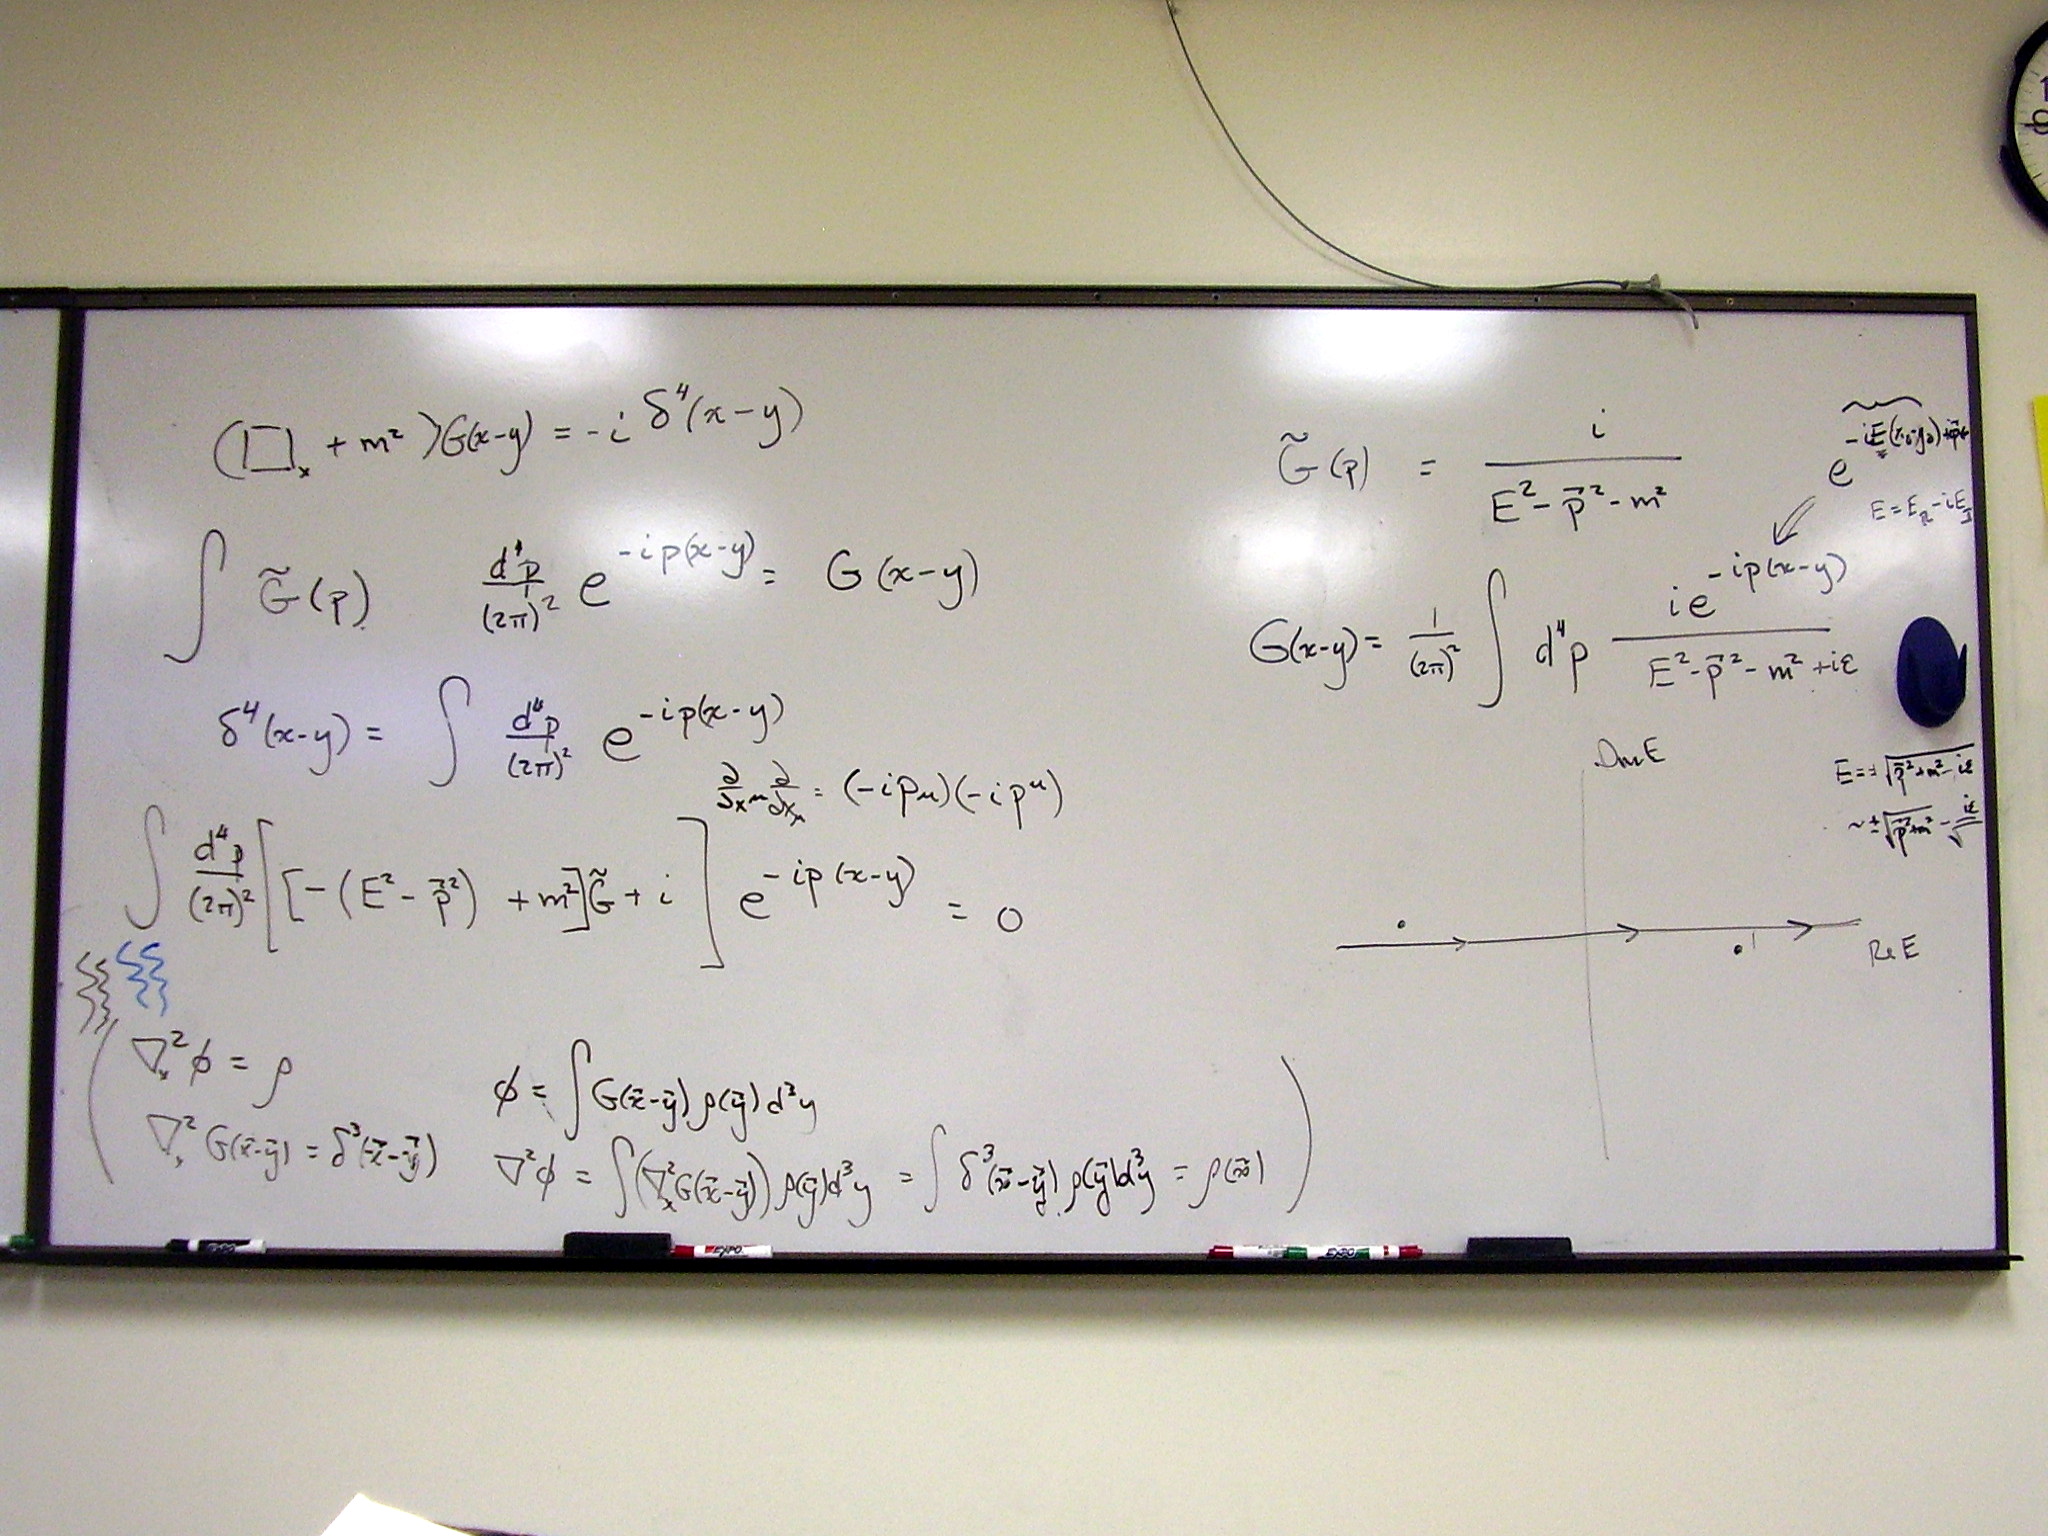 (□ₓ + m²)G(x-y) = -i δ⁴(x-y)
∫ G̃(p) d⁴p/(2π)² e^{-ip(x-y)} = G(x-y)
δ⁴(x-y) = ∫ d⁴p/(2π)² e^{-ip(x-y)}
∂/∂x^μ ∂/∂x_μ = (-ip_μ)(-ip^μ)
∫ d⁴p/(2π)² [[-(E² - p⃗²) + m²]G̃ + i] e^{-ip(x-y)} = 0
(∇ₓ²φ = ρ
φ = ∫G(x⃗-y⃗)ρ(y⃗)d³y
∇ₓ²G(x⃗-y⃗) = δ³(x⃗-y⃗)
∇²φ = ∫(∇ₓ²G(x⃗-y⃗))ρ(y⃗)d³y = ∫δ³(x⃗-y⃗)ρ(y⃗)d³y = ρ(x⃗))
G̃(p) = i/(E² - p⃗² - m²)
E = E_R - iE_I
G(x-y) = 1/(2π)² ∫ d⁴p ie^{-ip(x-y)}/(E² - p⃗² - m² + iε)
Im E
E = ±√(p⃗² + m² - iε)
~ ±√(p⃗² + m²) - iε/√
Re E
EXPO
EXPO
9